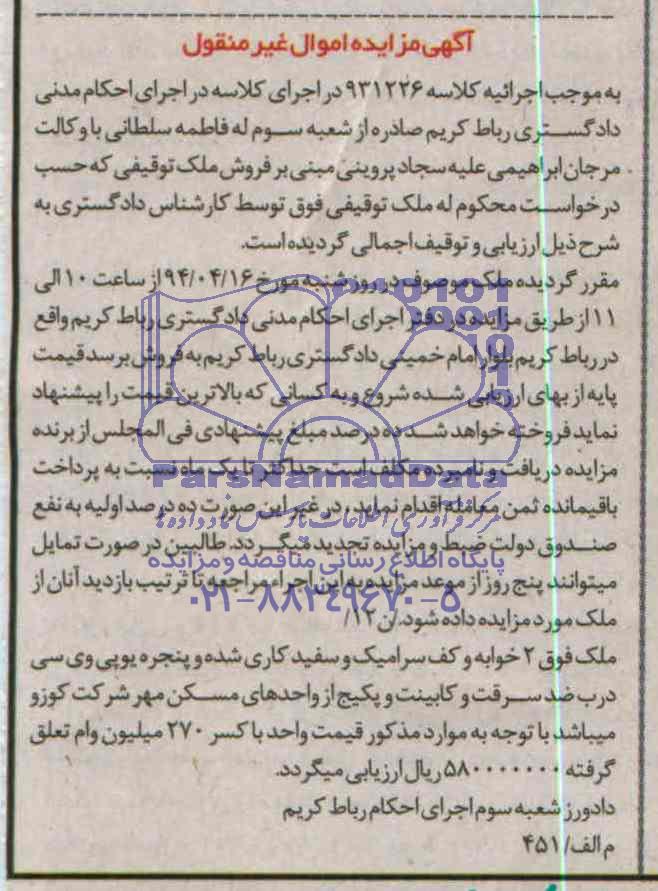 آگهی مزایده اموال غیر منقول
به موجب اجرائیه کلاسه ۹۳۱۲۲۶ در اجرای کلاسه در اجرای احکام مدنی
دادگستری رباط کریم صادره از شعبه سوم له فاطمه سلطانی با وکالت
مرجان ابراهیمی علیه سجاد پروینی مبنی بر فروش ملک توقیفی که حسب
درخواست محکوم له ملک توقیفی فوق توسط کارشناس دادگستری به
شرح ذیل ارزیابی و توقیف اجمالی گردیده است.
مقرر گردیده ملک موصوف در روز شنبه مورخ ۹۴/۰۴/۱۶ از ساعت ۱۰ الی
۱۱ از طریق مزایده در دفتر اجرای احکام مدنی دادگستری رباط کریم واقع
در رباط کریم بلوار امام خمینی دادگستری رباط کریم به فروش برسد قیمت
پایه از بهای ارزیابی شده شروع و به کسانی که بالاترین قیمت را پیشنهاد
نماید فروخته خواهد شد ده درصد مبلغ پیشنهادی فی المجلس از برنده
مزایده دریافت و نامبرده مکلف است حداکثر تا یک ماه نسبت به پرداخت
ParsNamadData
باقیمانده ثمن معامله اقدام نماید، در غیر این صورت ده درصد اولیه به نفع
مرکز فرآوری اطلاعات پارس نماد داده ها
صندوق دولت ضبط و مزایده تجدید میگردد. طالبین در صورت تمایل
پایگاه اطلاع رسانی مناقصه و مزایده
میتوانند پنج روز از موعد مزایده به این اجراء مراجعه تا ترتیب بازدید آنان از
۰۲۱-۸۸۳۴۹۶۷۰-۵
ملک مورد مزایده داده شود./ن ۱۲/
ملک فوق ۲ خوابه و کف سرامیک و سفید کاری شده و پنجره یو پی وی سی
درب ضد سرقت و کابینت و پکیج از واحدهای مسکن مهر شرکت کوزو
میباشد با توجه به موارد مذکور قیمت واحد با کسر ۲۷۰ میلیون وام تعلق
گرفته ۵۸۰۰۰۰۰۰۰ ریال ارزیابی میگردد.
دادورز شعبه سوم اجرای احکام رباط کریم
م الف/ ۴۵۱